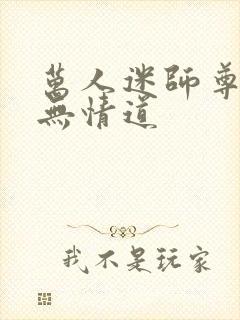 萬人迷師尊
無情道
我不是玩家